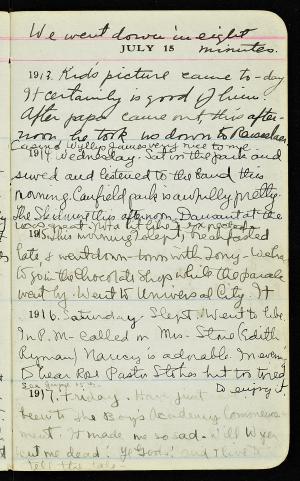 We went down in eight
JULY 15 minutes.
1913. Kid's picture came to-day
It certainly is good of him.
After papa came out this after-
noon he took us down to
very nice to me.
1914. Wednesday. Sat in the park and
sewed and listened to the band this
morning. Canfield park is awfully pretty.
this afternoon. at the
1915. This morning I slept, breakfasted
late & went down-town with Tony - We had
to go in the Chocolate Shop while the parade
went by. Went to Universal City. It
1916. Saturday. Slept. Went to
In P.M. called on Mrs. Stone (Edith
Ryman) Nancy is adorable. In evening
to hear Rose Pastor Stokes but too tired
to enjoy it.
1917. Friday. Have just
been to the Boy's Academy Commence-
ment. It made me so sad. Will
cut me dead! Ye Gods! and I